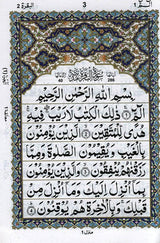 البقرة ٢
3
الٓمّٓ ١
بِسْمِ اللّٰهِ الرَّحْمٰنِ الرَّحِيْمِ
الٓمّٓ ۚ ذٰلِكَ الْكِتٰبُ لَا رَيْبَ ۛ فِيْهِ ۛ
هُدًى لِّلْمُتَّقِيْنَ ۙ الَّذِيْنَ يُؤْمِنُوْنَ
بِالْغَيْبِ وَيُقِيْمُوْنَ الصَّلٰوةَ وَمِمَّا
رَزَقْنٰهُمْ يُنْفِقُوْنَ ۙ وَالَّذِيْنَ يُؤْمِنُوْنَ
بِمَآ اُنْزِلَ اِلَيْكَ وَمَآ اُنْزِلَ مِنْ
قَبْلِكَ ۚ وَبِالْاٰخِرَةِ هُمْ يُوْقِنُوْنَ
منزل ١